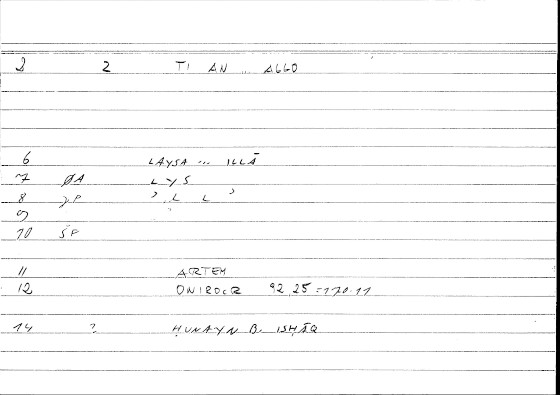 2 2 TI AN ... ALLO
6 LAYSA ... ILLĀ
7 ØA LYS
8 ɣP ʾLLʾ
9
10 ŠP
11 ARTEM
12 ONIROCR 92,25 = 170.11
14 ? ḤUNAYN B. ISḤĀQ